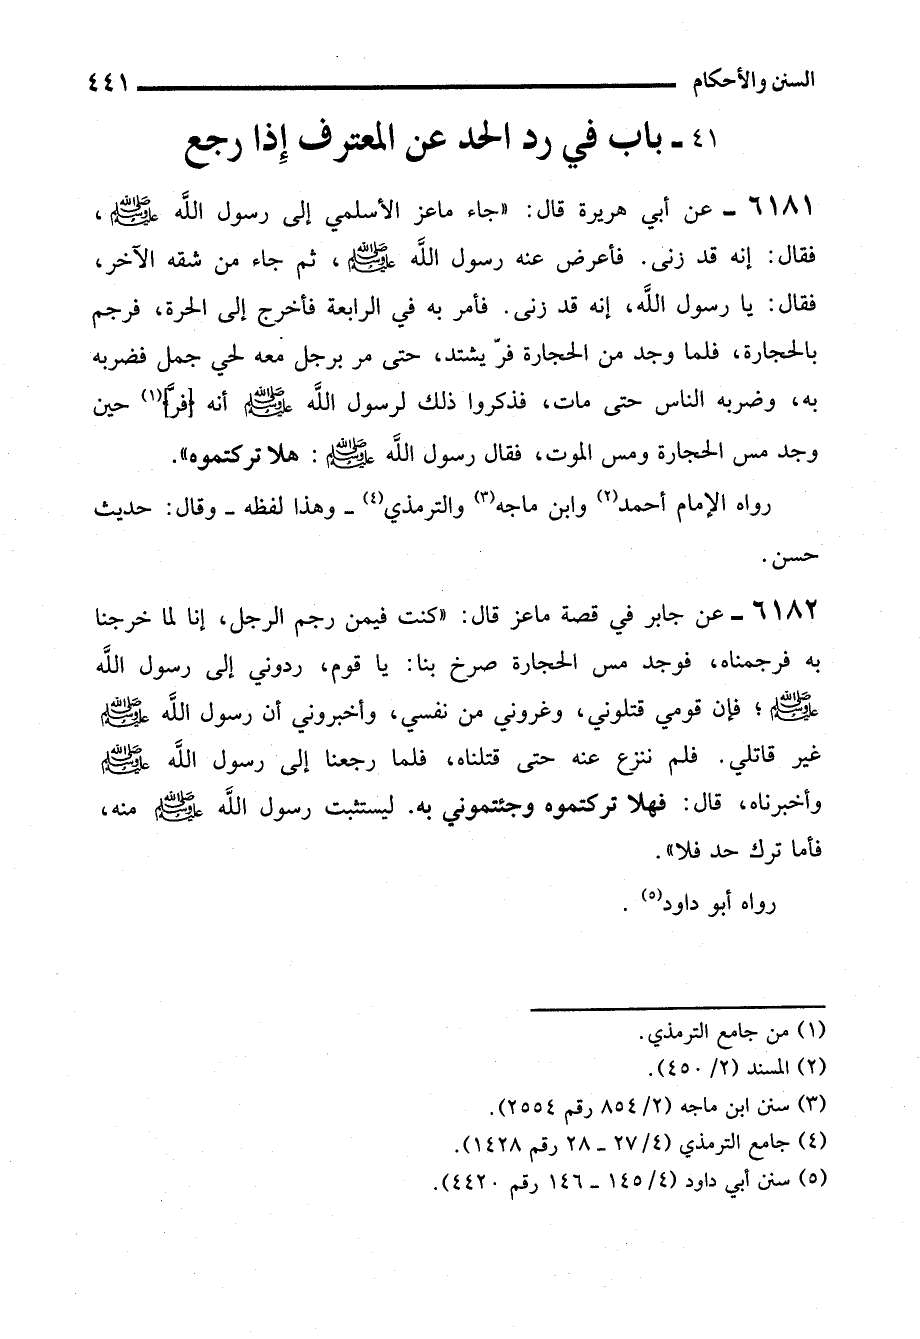 السنن والأحكام ٤٤١
٤١ ـ باب في رد الحد عن المعترف إذا رجع
٦١٨١ ـ عن أبي هريرة قال: «جاء ماعز الأسلمي إلى رسول اللَّه ﷺ ،
فقال: إنه قد زنى. فأعرض عنه رسول اللَّه ﷺ ، ثم جاء من شقه الآخر،
فقال: يا رسول اللَّه، إنه قد زنى. فأمر به في الرابعة فأخرج إلى الحرة، فرجم
بالحجارة، فلما وجد من الحجارة فرّ يشتد، حتى مر برجل معه لحي جمل فضربه
به، وضربه الناس حتى مات، فذكروا ذلك لرسول اللَّه ﷺ أنه [فرَّ](١) حين
وجد مس الحجارة ومس الموت، فقال رسول اللَّه ﷺ : هلا تركتموه».
رواه الإمام أحمد(٢) وابن ماجه(٣) والترمذي(٤) ـ وهذا لفظه ـ وقال: حديث
حسن.
٦١٨٢ ـ عن جابر في قصة ماعز قال: «كنت فيمن رجم الرجل، إنا لما خرجنا
به فرجمناه، فوجد مس الحجارة صرخ بنا: يا قوم، ردوني إلى رسول اللَّه
ﷺ ؛ فإن قومي قتلوني، وغروني من نفسي، وأخبروني أن رسول اللَّه ﷺ
غير قاتلي. فلم ننزع عنه حتى قتلناه، فلما رجعنا إلى رسول اللَّه ﷺ
وأخبرناه، قال: فهلا تركتموه وجئتموني به. ليستثبت رسول اللَّه ﷺ منه،
فأما ترك حد فلا».
رواه أبو داود(٥) .
(١) من جامع الترمذي.
(٢) المسند (٢/ ٤٥٠).
(٣) سنن ابن ماجه (٢/ ٨٥٤ رقم ٢٥٥٤).
(٤) جامع الترمذي (٤/ ٢٧ ـ ٢٨ رقم ١٤٢٨).
(٥) سنن أبي داود (٤/ ١٤٥ ـ ١٤٦ رقم ٤٤٢٠).